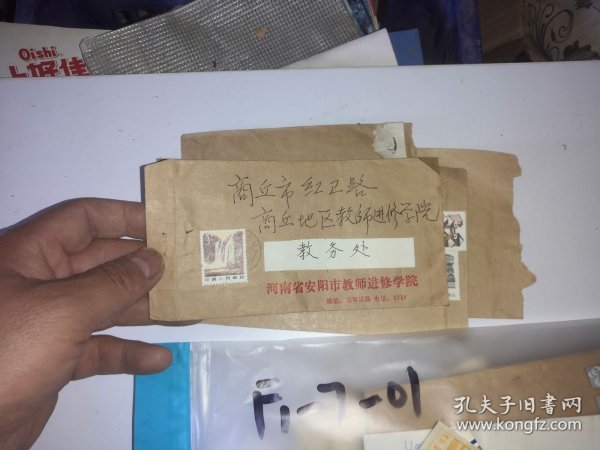 Oishi
上好佳
商丘市红卫路
商丘地区教师进修学院
教务处
中国人民邮政
河南省安阳市教师进修学院
F1-7-01
孔夫子旧书网
www.kongfz.com